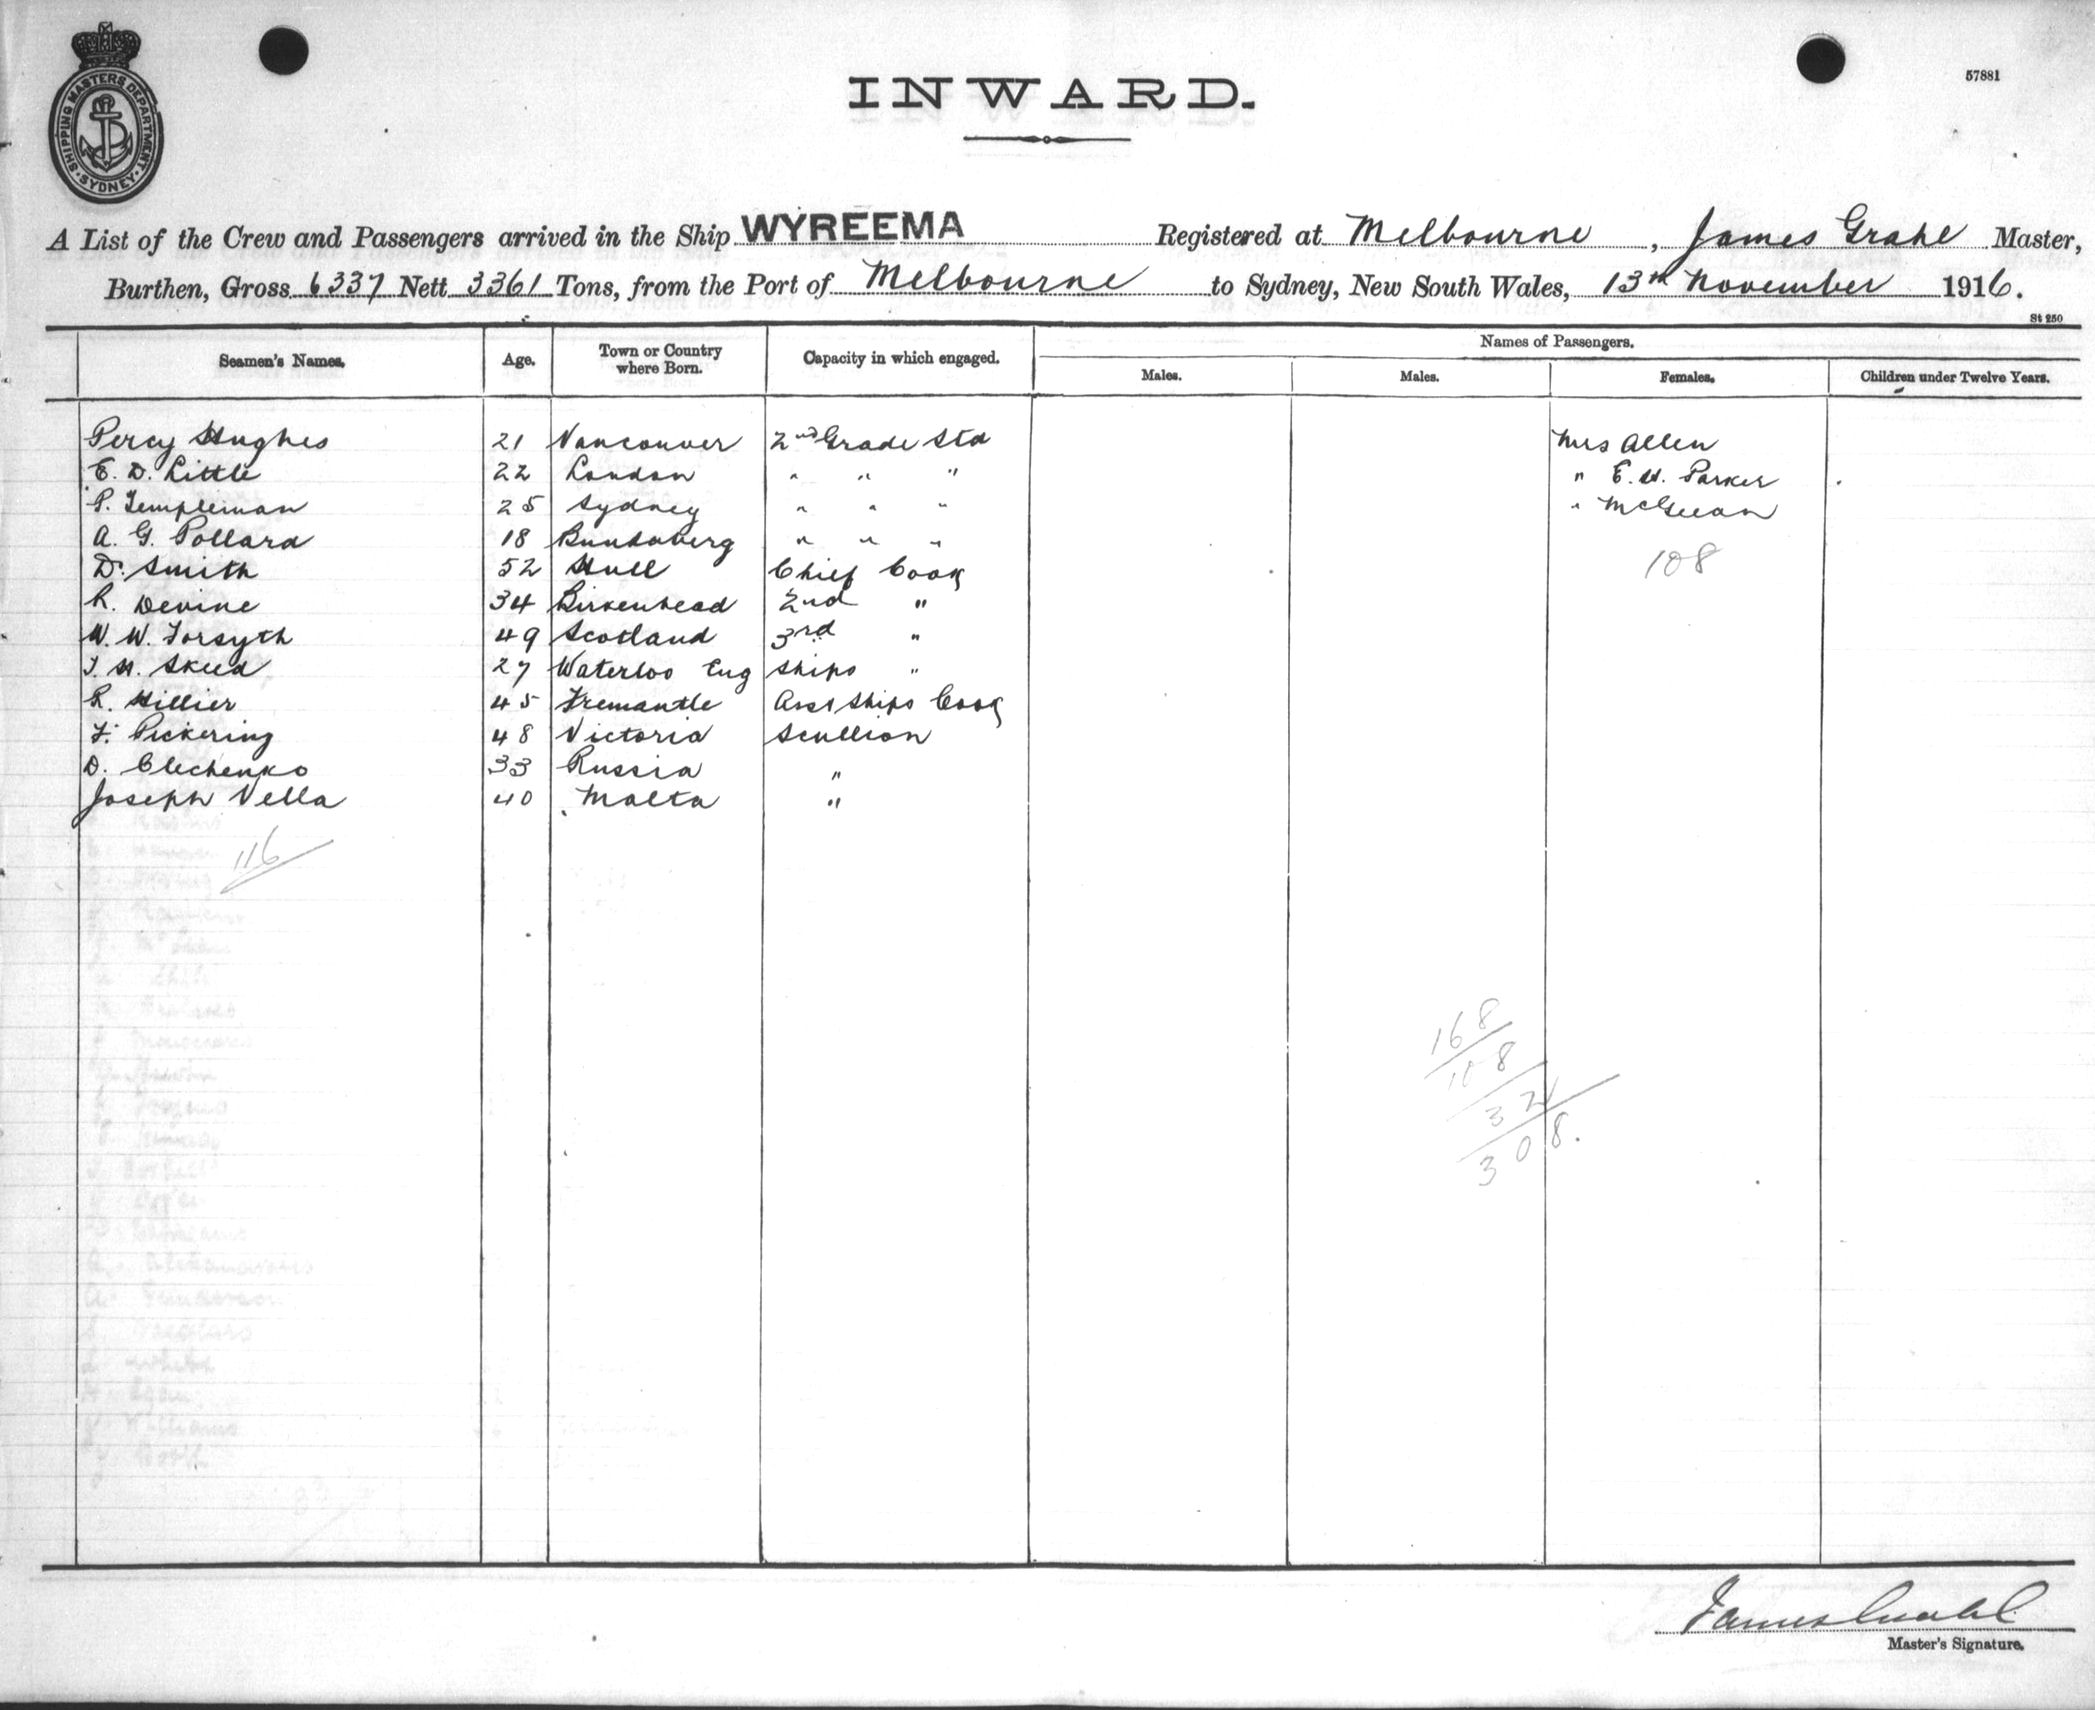 SHIPPING MASTERS DEPARTMENT · SYDNEY ·
57881
INWARD.
A List of the Crew and Passengers arrived in the Ship WYREEMA Registered at Melbourne, James Grahl Master,
Burthen, Gross 6337 Nett 3361 Tons, from the Port of Melbourne to Sydney, New South Wales, 13th November 1916.
St 250
Seamen's Names. Age. Town or Country where Born. Capacity in which engaged. Names of Passengers.
Males. Males. Females. Children under Twelve Years.
Percy Hughes 21 Vancouver 2nd Grade Std Mrs Allen
E. D. Little 22 London " " " " E. H. Parker
P. Templeman 25 Sydney " " " "
A. G. Pollard 18 Bundaberg " " "
D. Smith 52 Hull Chief Cook 108
R. Devine 34 Birkenhead 2nd "
W. W. Forsyth 49 Scotland 3rd "
27 Waterloo Eng Ships "
R. Hillier 45 Fremantle Asst Ships Cook
F. Pickering 48 Victoria Scullion
D. Clechenko 33 Russia "
Joseph Vella 40 Malta "
116
168
108
32
308.
James Grahl
Master's Signature.